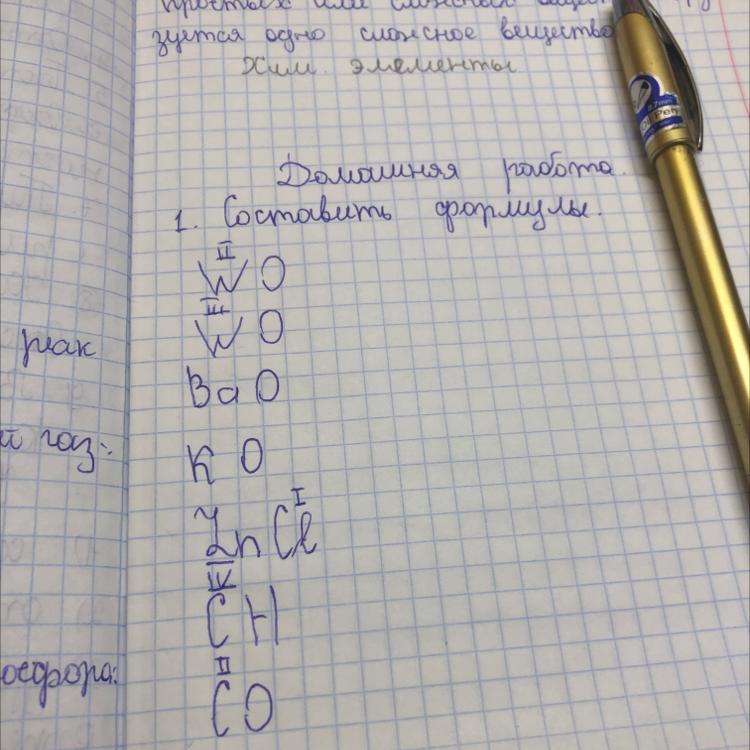 простых или сложных
зуется одно сложное вещество
Хим. элементы
Домашняя работа.
1. Составить формулы.
II
W O
W O
Ba O
K O
I
Zn Cl
IV
C H
II
C O
газ: